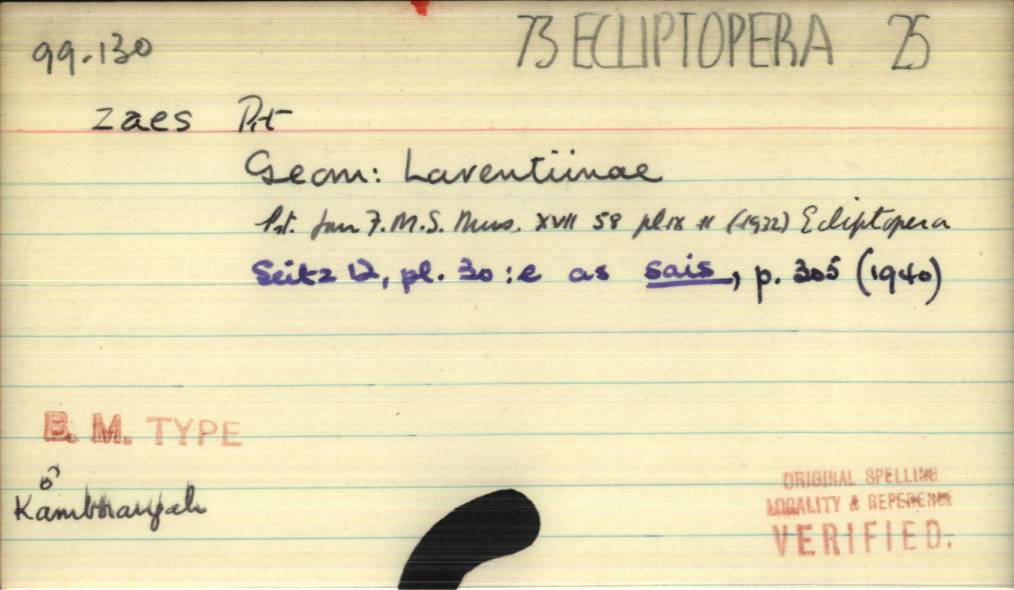 99.130 73 ECLIPTOPERA 25
zaes Prt
Geom: Larentiinae
Prt. Jour F.M.S. Mus. XVII 58 pl IX 11 (1932) Ecliptopera
Seitz 12, pl. 30:e as sais, p. 305 (1940)
B. M. TYPE
♂
ORIGINAL SPELLING
LOCALITY & REFERENCE
VERIFIED.